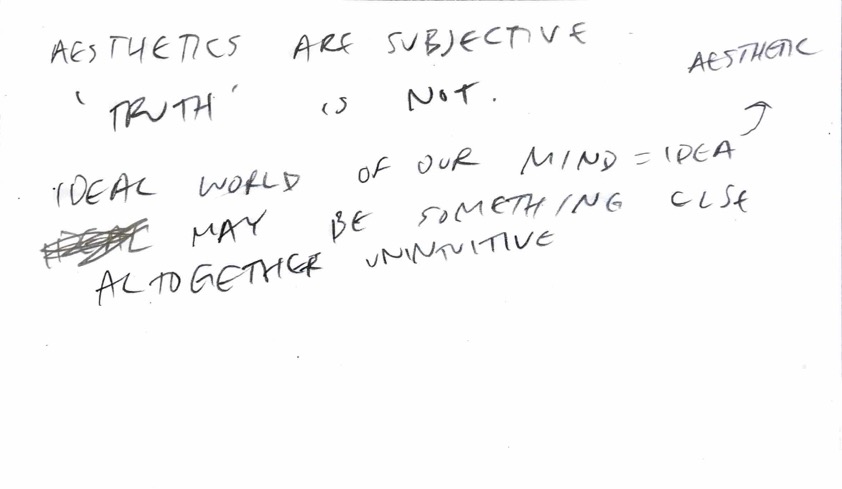 AESTHETICS ARE SUBJECTIVE
AESTHETIC
'TRUTH' IS NOT.
IDEAL WORLD OF OUR MIND = IDEA
MAY BE SOMETHING ELSE
ALTOGETHER UNINTUITIVE